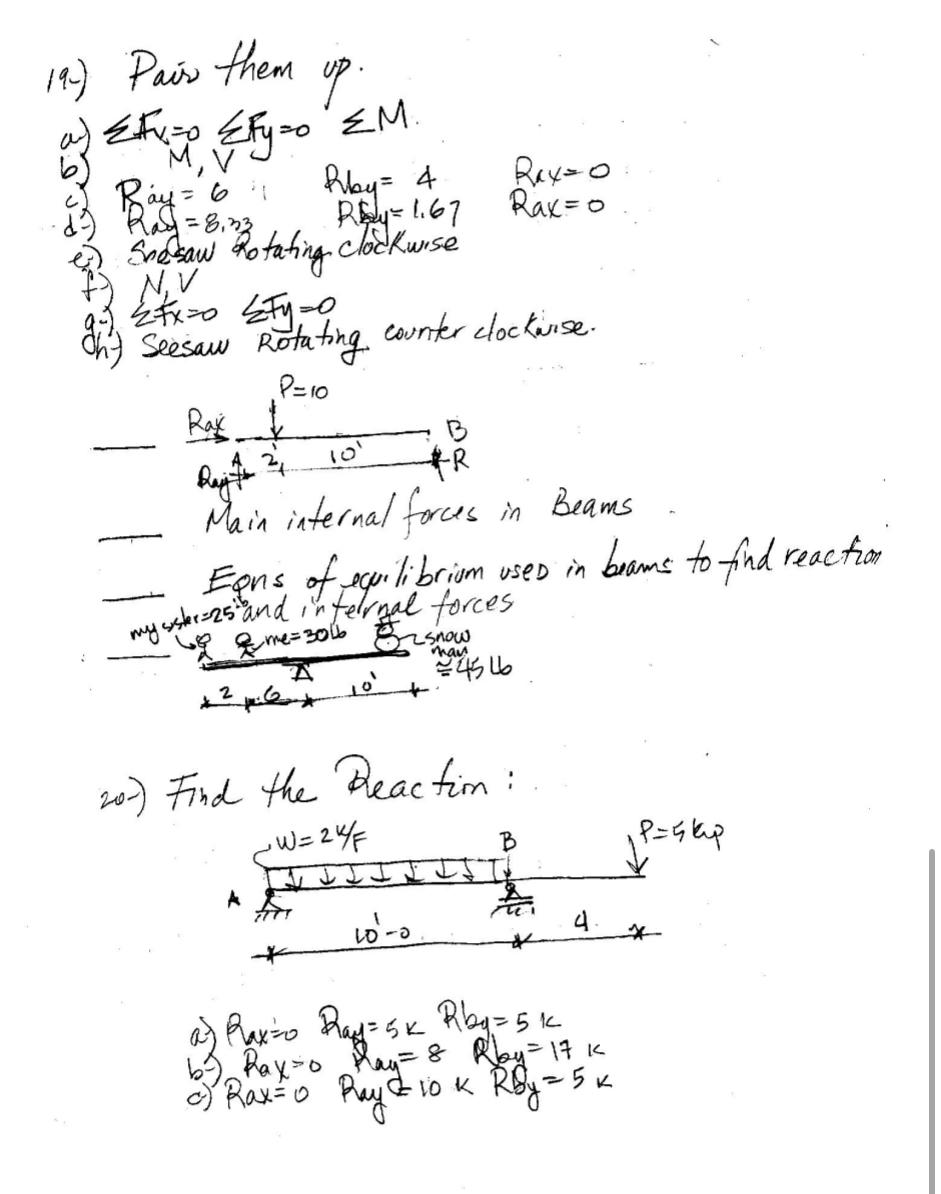 19-) Pair them up.
a-) ΣFx=0 ΣFy=0 ΣM
b) M, V
c) Ray = 6 Rby = 4 Rax=0
d-) Ray = 8.33 Rby = 1.67 Rax=0
e-) Seesaw Rotating clockwise
f-) N, V
g-) ΣFx=0 ΣFy=0
h-) Seesaw Rotating counter clockwise.
P=10
Rax
B
A 2' 10' R
Ray
Main internal forces in Beams
Eqns of equilibrium used in beams to find reaction
and internal forces
my sister=25lb me=30lb snow man ≅45 lb
2 6 10'
20-) Find the Reaction:
W=2k/F B P=5 kip
A
10'-0 4
a) Rax=0 Ray=5k Rby=5k
b-) Rax=0 Ray=8 Rby=17 k
c) Rax=0 Ray=10 k Rby=5 k